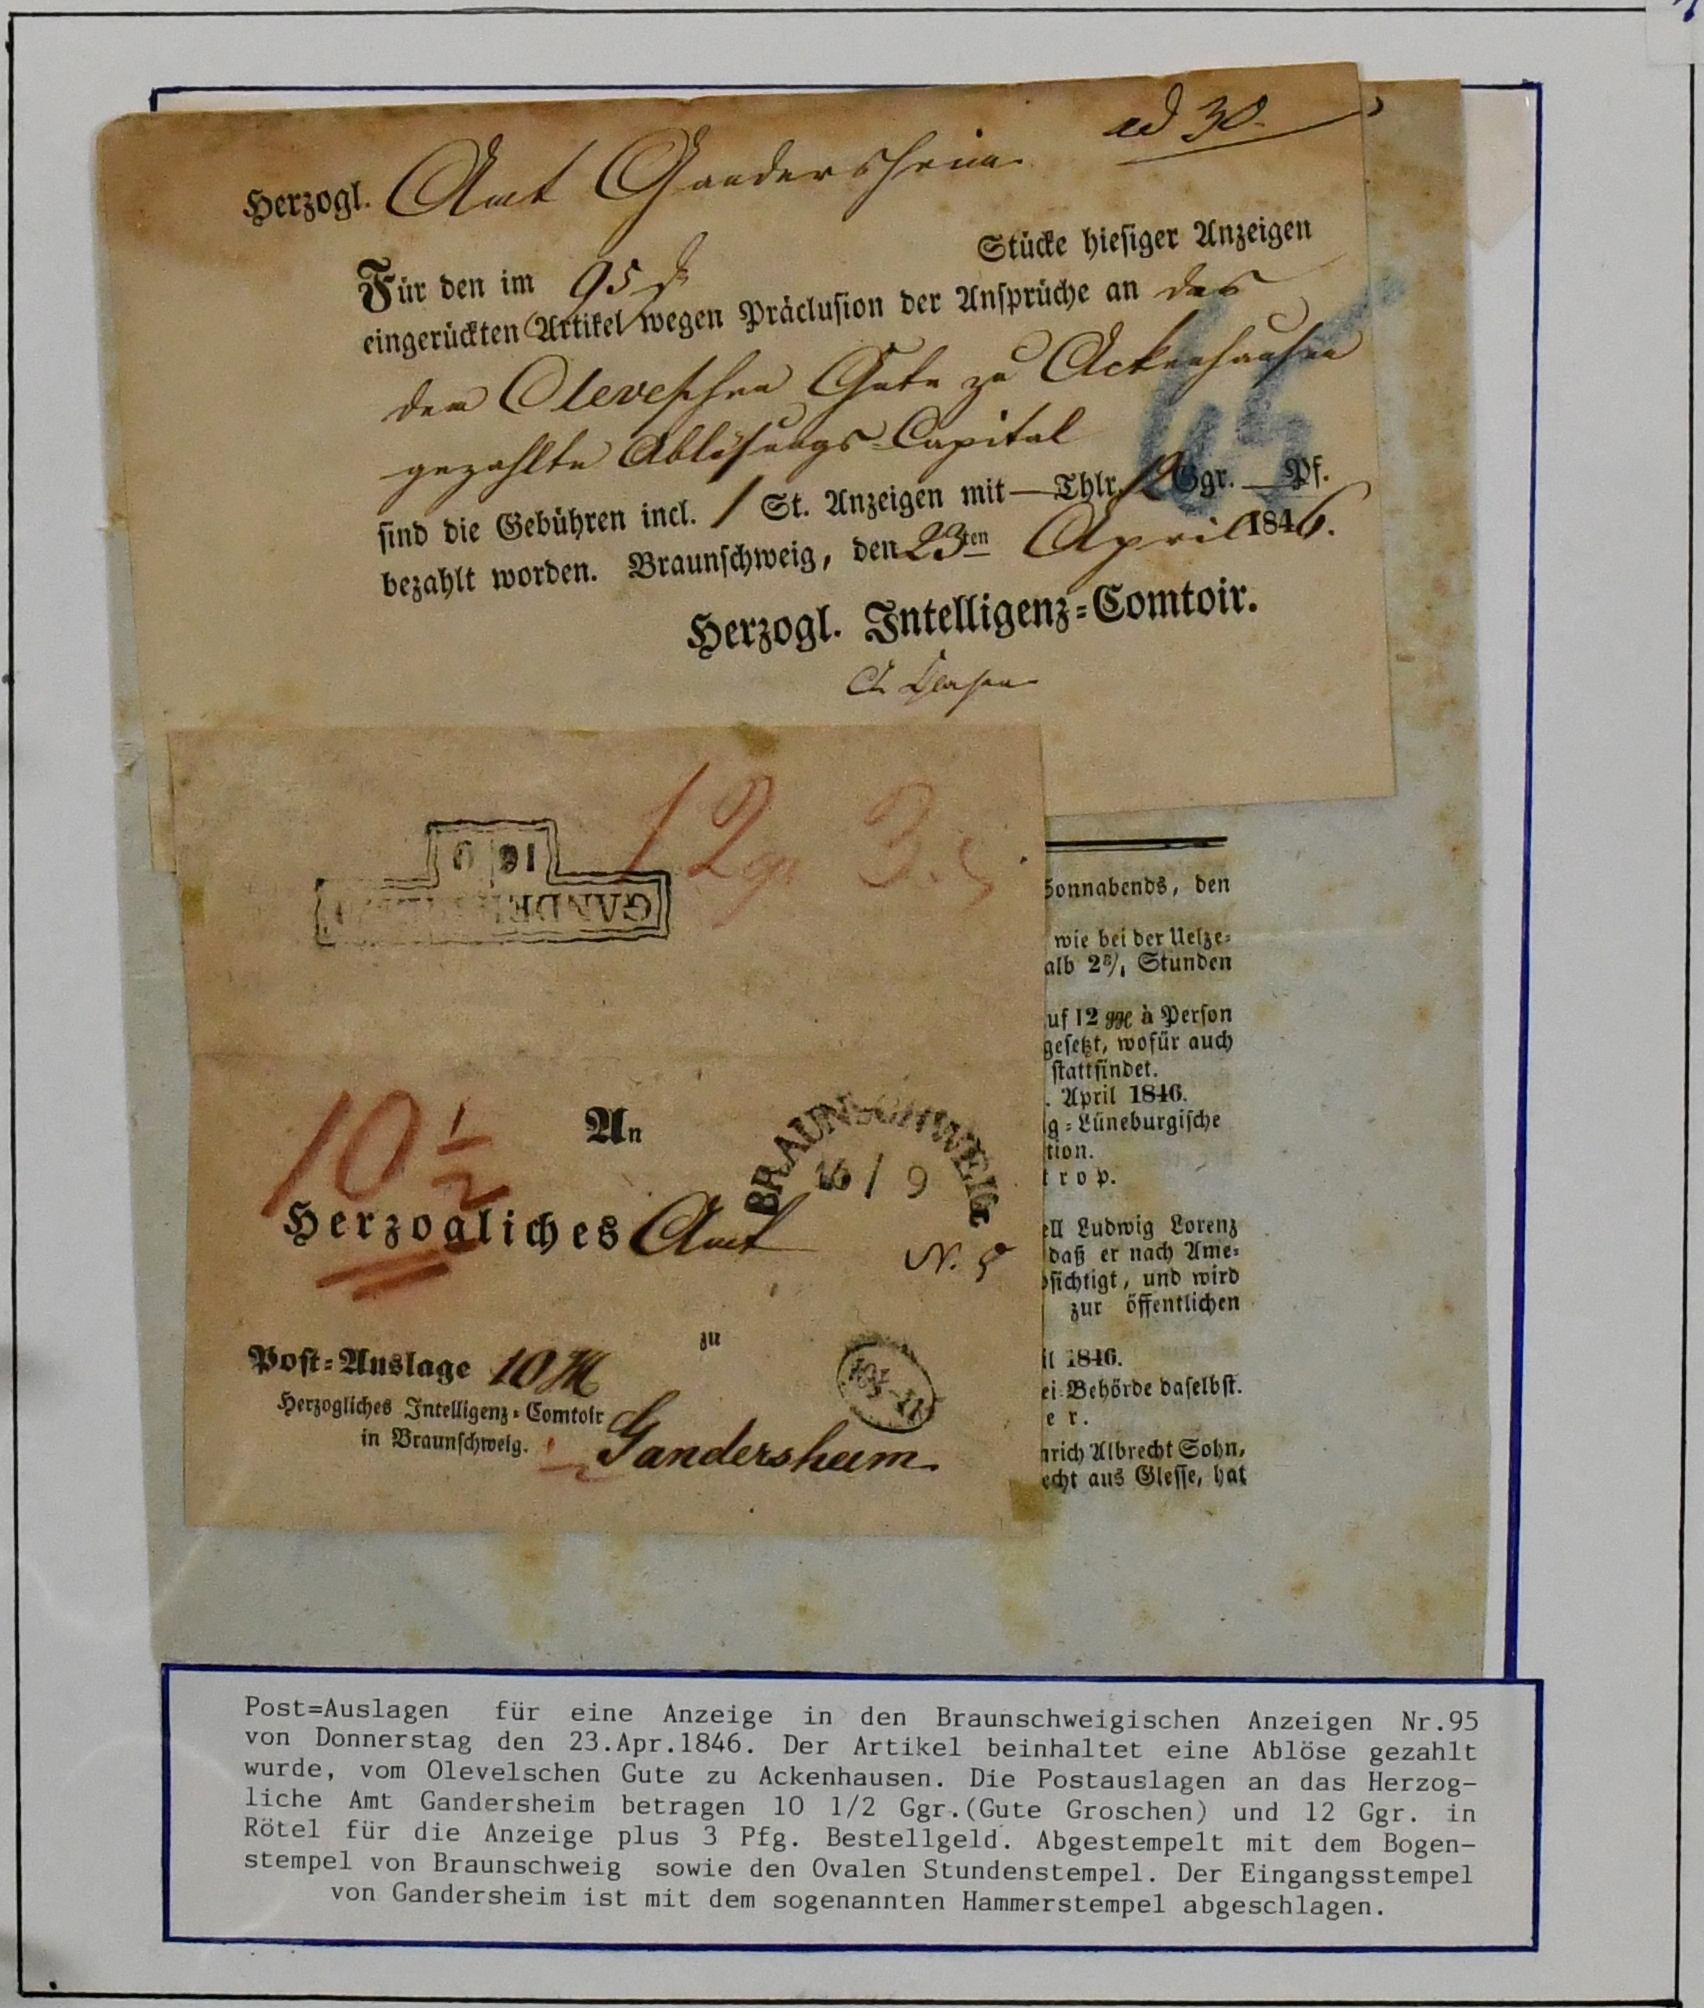 ad 30.
Herzogl. Amt Gandersheim
Für den im 95 Stücke hiesiger Anzeigen
eingerückten Artikel wegen Präclusion der Ansprüche an das
dem Oleveschen Gute zu Ackenhausen
gezahlte Ablösungs-Capital
sind die Gebühren incl. 1 St. Anzeigen mit — Thlr. 12 Ggr. — Pf.
bezahlt worden. Braunschweig, den 23ten April 1846.
Herzogl. Intelligenz=Comtoir.
45
12 gr 3.
16 9
GANDERSHEIM
10 1/2
An
BRAUNSCHWEIG
16 / 9
Herzogliches Amt
N. 5
zu
Post=Auslage 10
Herzogliches Intelligenz=Comtoir
in Braunschweig.
Gandersheim
Sonnabends, den
wie bei der Uelze=
alb 2 Stunden
uf 12 à Person
gesetzt, wofür auch
stattfindet.
. April 1846.
g=Lüneburgische
tion.
t r o p.
ell Ludwig Lorenz
daß er nach Ame=
sichtigt, und wird
zur öffentlichen
il 1846.
ei=Behörde daselbst.
e r.
nrich Albrecht Sohn,
echt aus Glesse, hat
Post=Auslagen für eine Anzeige in den Braunschweigischen Anzeigen Nr.95
von Donnerstag den 23.Apr.1846. Der Artikel beinhaltet eine Ablöse gezahlt
wurde, vom Olevelschen Gute zu Ackenhausen. Die Postauslagen an das Herzog-
liche Amt Gandersheim betragen 10 1/2 Ggr.(Gute Groschen) und 12 Ggr. in
Rötel für die Anzeige plus 3 Pfg. Bestellgeld. Abgestempelt mit dem Bogen-
stempel von Braunschweig sowie den Ovalen Stundenstempel. Der Eingangsstempel
von Gandersheim ist mit dem sogenannten Hammerstempel abgeschlagen.